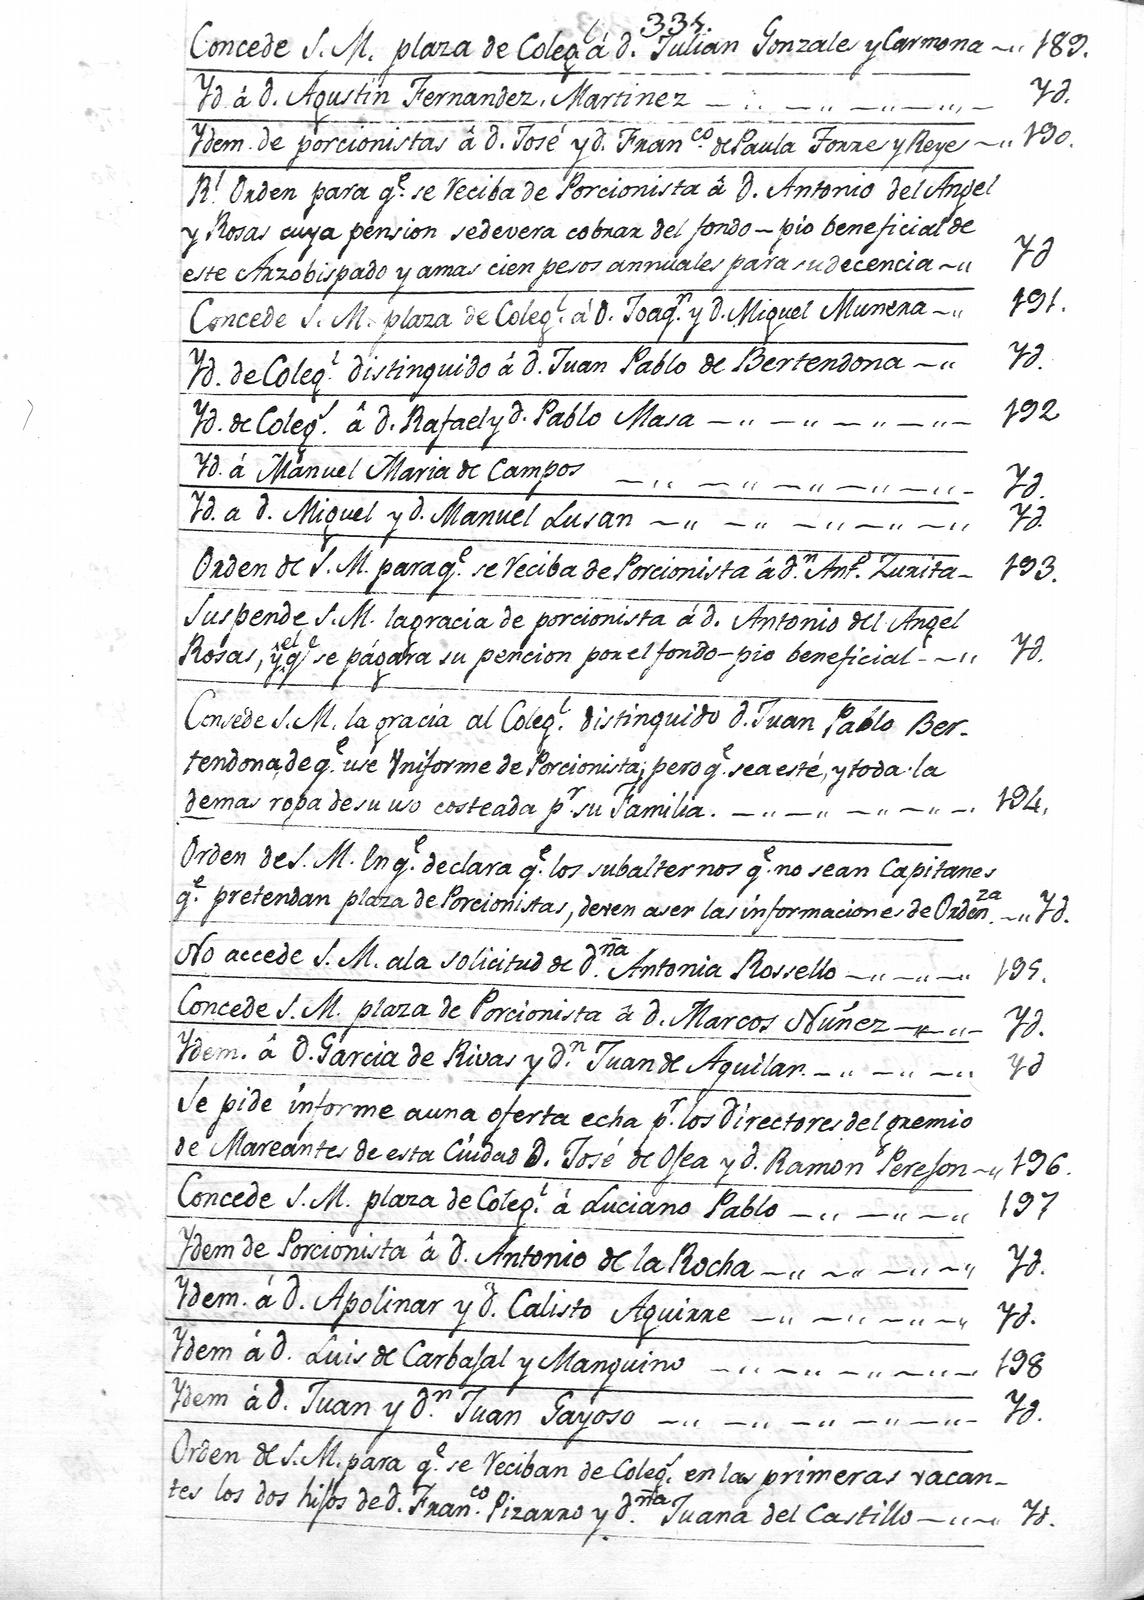 334.
Concede S. M. plaza de Coleg.l á d. Julian Gonzales y Carmona -,, 189.
Yd. á d. Agustin Fernandez, Martinez - ,, - ,, - ,, - ,, - Yd.
Ydem. de porcionistas â d. José y d. Fran.co de Paula Forre y Reyes -,, 190.
R.l Orden para q.e se reciba de Porcionista â D. Antonio del Angel
y Rosas cuya pension sedevera cobrar del fondo-pio beneficial de
este Arzobispado y amas cien pesos annuales para sudecencia -,, Yd
Concede S. M. plaza de Coleg.l á D. Joaq.n y d. Miguel Munera -,, 191.
Yd. de Coleg.l distinguido á d. Juan Pablo de Bertendona -,, Yd.
Yd. de Coleg.l â d. Rafael y d. Pablo Masa - ,, - ,, - ,, - ,, - 192
Yd. á Manuel Maria de Campos - ,, - ,, - ,, - ,, - ,, - Yd.
Yd. a d. Miguel y d. Manuel Lusan - ,, - ,, - ,, - ,, - ,, Yd.
Orden de S. M. paraq.e se reciba de Porcionista â d.n Ant.o Zurita - 193.
Suspende S. M. lagracia de porcionista á d. Antonio del Angel
Rosas, y el q.e se págara su pencion por el fondo-pio beneficial - -,, Yd.
Consede S. M. la gracia al Coleg.l distinguido d. Juan Pablo Ber-
tendona, de q.e use Vniforme de Porcionista; pero q.e sea esté, y toda la
demas ropa de su uso costeada p.r su Familia. - ,, - ,, - ,, - 194.
Orden de S. M. En q.e declara q.e los subalternos q.e no sean Capitanes
q.e pretendan plaza de Porcionistas, deven aser las informaciones de Orden.za -,, Yd.
No accede S. M. ala solicitud de d.ña Antonia Rossello - ,, - ,, - ,, 195.
Concede S. M. plaza de Porcionista â d. Marcos Núñez - ,, - Yd.
Ydem. â D. Garcia de Rivas y d.n Juan de Aguilar. - ,, - ,, - ,, Yd
Se pide informe auna oferta echa p.r los Directores del gremio
de Mareantes de esta Ciudad D. José de Osea y d. Ramon Pereson -,, 196.
Concede S. M. plaza de Coleg.l á Luciano Pablo - ,, - ,, - ,, 197
Ydem de Porcionista â d. Antonio de la Rocha - ,, - ,, - ,, - ,, Yd.
Ydem. á d. Apolinar y d. Calisto Aguirre - ,, - ,, - ,, - ,, Yd.
Ydem á d. Luis de Carbasal y Manguino - ,, - ,, - ,, - ,, - 198
Ydem á d. Juan y d.n Juan Gayoso - ,, - ,, - ,, - ,, - Yd.
Orden de S. M. para q.e se reciban de Coleg.l en las primeras vacan-
tes los dos hijos de d. Fran.co Pizarro y d.ña Juana del Castillo - ,, - ,, Yd.